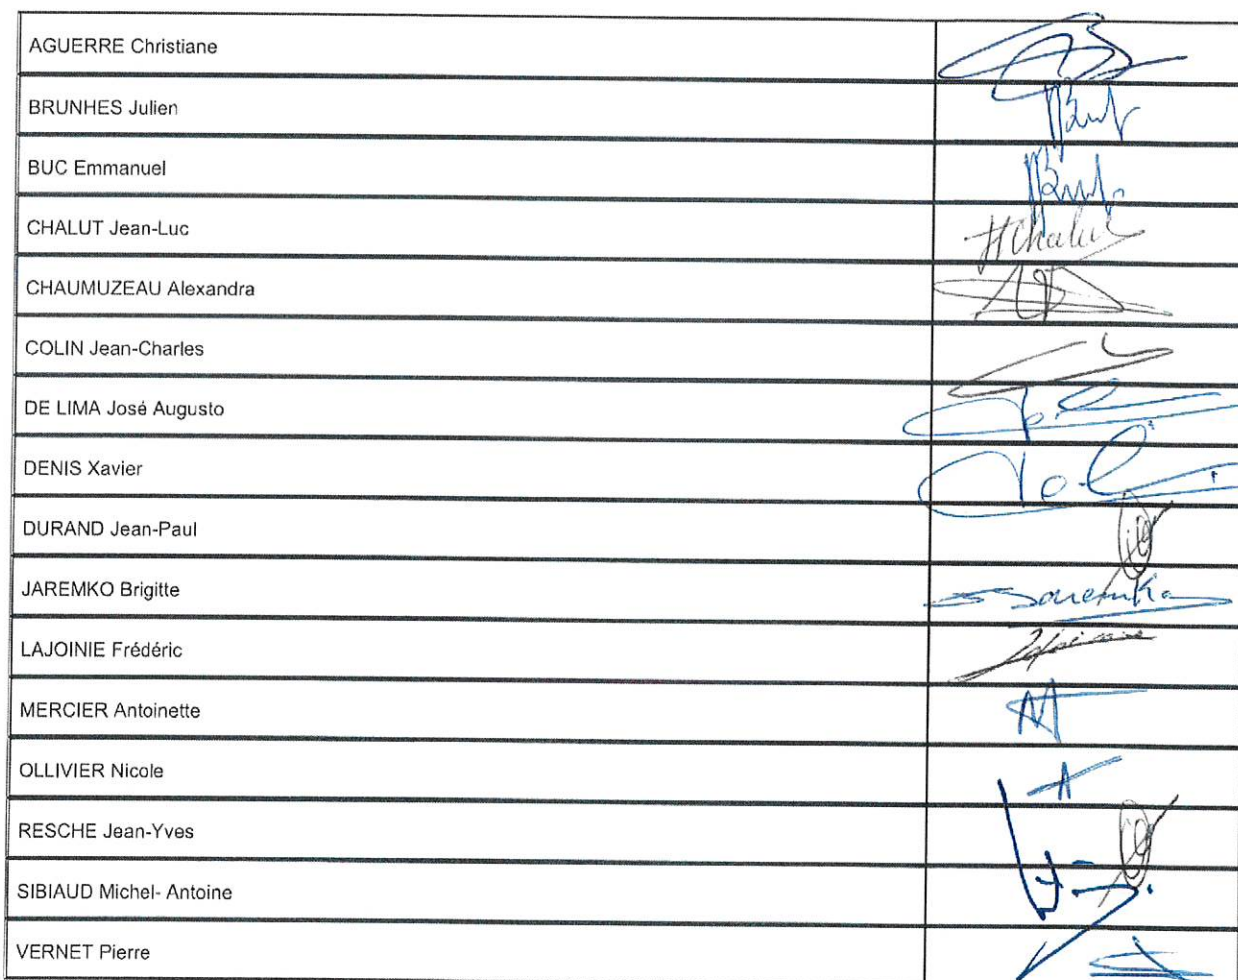 AGUERRE Christiane
BRUNHES Julien
BUC Emmanuel
CHALUT Jean-Luc
CHAUMUZEAU Alexandra
COLIN Jean-Charles
DE LIMA José Augusto
DENIS Xavier
DURAND Jean-Paul
JAREMKO Brigitte
LAJOINIE Frédéric
MERCIER Antoinette
OLLIVIER Nicole
RESCHE Jean-Yves
SIBIAUD Michel- Antoine
VERNET Pierre